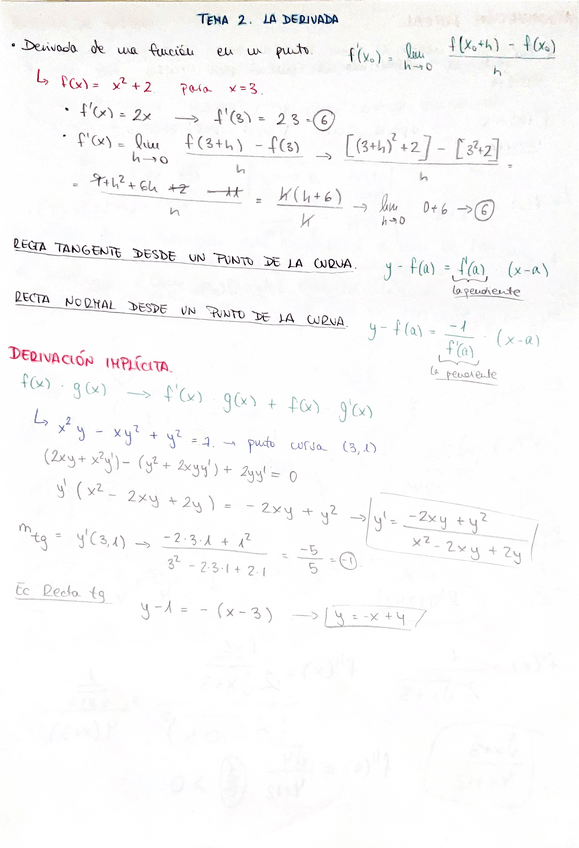 TEMA 2. LA DERIVADA
• Derivada de una función en un punto. f'(x₀) = lim h→0 f(x₀+h) - f(x₀) / h
↳ f(x) = x² + 2 para x = 3.
• f'(x) = 2x → f'(3) = 2·3 = 6
• f'(x) = lim h→0 f(3+h) - f(3) / h → [(3+h)² + 2] - [3²+2] / h =
= 9 + h² + 6h + 2 - 11 / h = h(h+6) / h → lim h→0 0+6 → 6
RECTA TANGENTE DESDE UN PUNTO DE LA CURVA. y - f(a) = f'(a) (x-a)
la pendiente
RECTA NORMAL DESDE UN PUNTO DE LA CURVA. y - f(a) = -1 / f'(a) · (x-a)
la pendiente
DERIVACIÓN IMPLÍCITA.
f(x) · g(x) → f'(x) · g(x) + f(x) · g'(x)
↳ x²y - xy² + y² = 7. → punto curva (3,1)
(2xy + x²y') - (y² + 2xyy') + 2yy' = 0
y' (x² - 2xy + 2y) = -2xy + y² → y' = -2xy + y² / x² - 2xy + 2y
m tg = y'(3,1) → -2·3·1 + 1² / 3² - 2·3·1 + 2·1 = -5 / 5 = -1.
Ec Recta tg
y - 1 = - (x - 3) → y = -x + 4